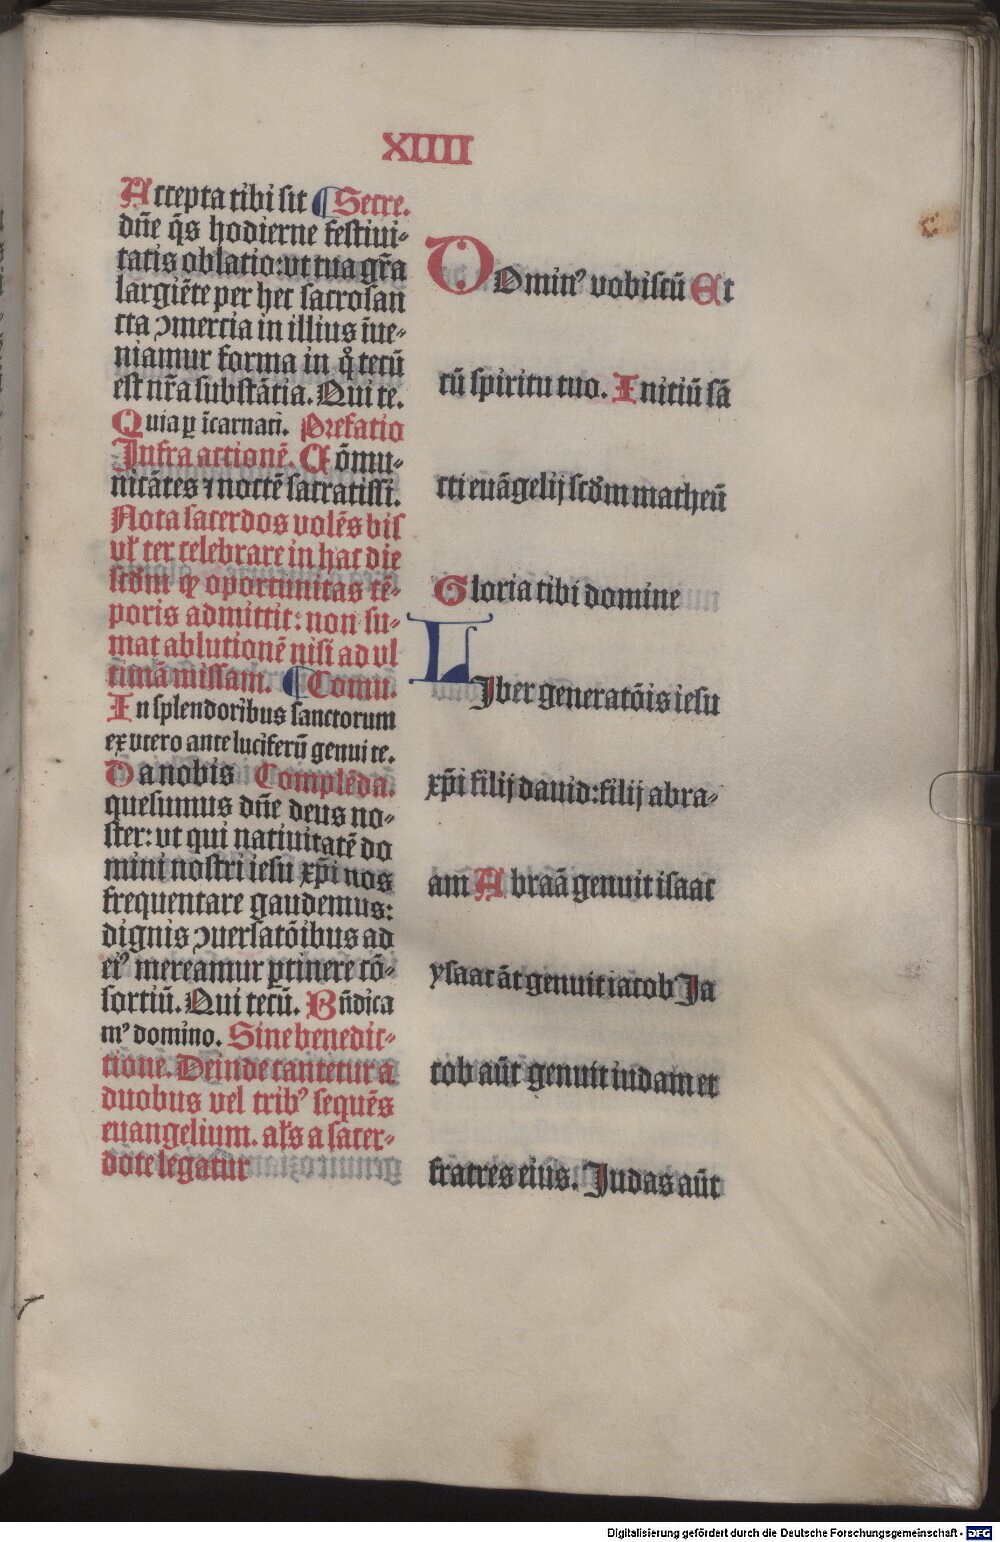 XIIII
Accepta tibi sit ¶ Secre.
dn̄e q̄s hodierne festiui-
tatis oblatio: vt tua gr̄a
largiēte per hec sacrosan
cta ɔmercia in illius īue-
niamur forma in q̊ tecū
est nr̄a substātia. Qui te.
Quia ꝑ īcarnati. Prefatio
Infra actionē. Cōmu-
nicātes ⁊ noctē sacratiſſi.
Nota sacerdos volēs bis
vľ ter celebrare in hac die
scd̄m ꝙ oportunitas tē-
poris admittit: non su-
mat ablutionē nisi ad vl
timā missam. ¶ Comu.
In splendoribus sanctorum
ex vtero ante luciferū genui te.
Da nobis Complēda.
quesumus dn̄e deus no-
ster: vt qui natiuitatē do
mini nostri iesu xp̄i nos
frequentare gaudemus:
dignis ɔuersatōibus ad
eiꝰ mereamur ꝑtinere cō-
sortiū. Qui tecū. Bn̄dica
mꝰ domino. Sine benedic-
tione. Deinde cantetur a
duobus vel tribꝰ sequēs
euangelium. aľs a sacer-
dote legatur
DOminꝰ vobiscū Et
cū spiritu tuo. Initiū sā
cti euāgelij scd̄m matheū
Gloria tibi domine
LIber generatōis iesu
xp̄i filij dauid: filij abra-
am Abraā genuit isaac
ysaac āt genuit iacob Ja
cob aūt genuit iudam et
fratres eius. Judas aūt
Digitalisierung gefördert durch die Deutsche Forschungsgemeinschaft - DFG